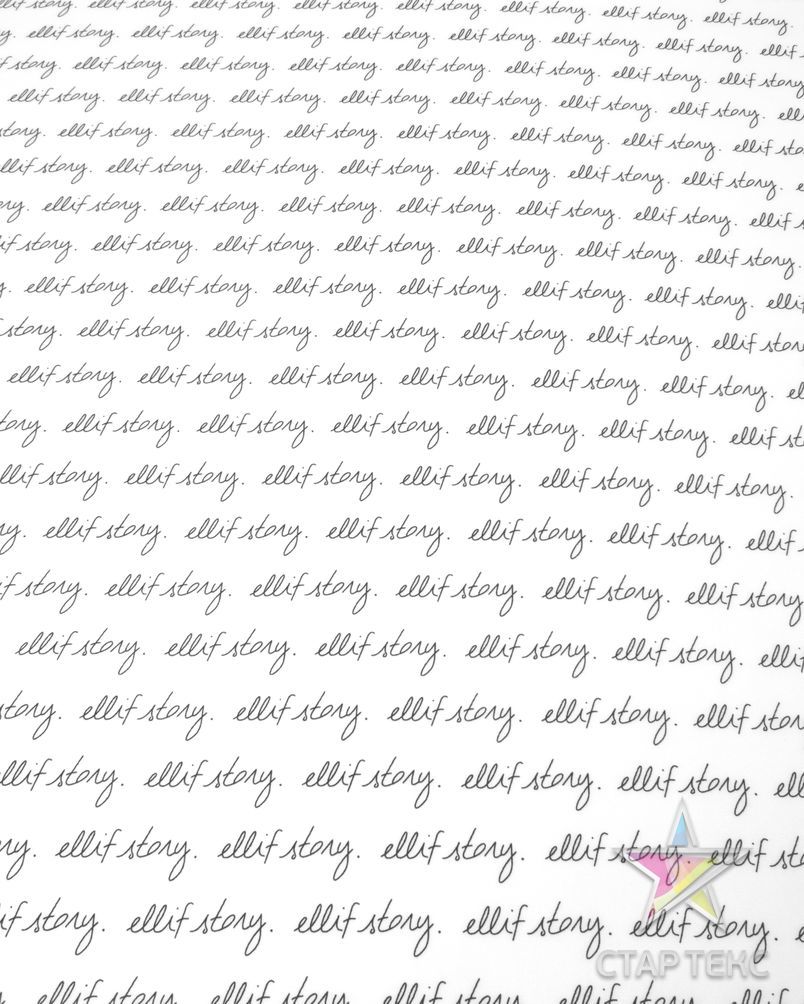 ellif story. ellif story. ellif story. ellif story. ellif story. ellif story. ellif story.
ellif story. ellif story. ellif story. ellif story. ellif story. ellif story. ellif
ellif story. ellif story. ellif story. ellif story. ellif story. ellif story. ellif story.
ellif story. ellif story. ellif story. ellif story. ellif story. ellif story. ellif story.
story. ellif story. ellif story. ellif story. ellif story. ellif story. ellif story. ellif
ellif story. ellif story. ellif story. ellif story. ellif story. ellif story. ellif story.
ellif story. ellif story. ellif story. ellif story. ellif story. ellif story. ellif
ellif story. ellif story. ellif story. ellif story. ellif story. ellif story. ellif story.
ellif story. ellif story. ellif story. ellif story. ellif story. ellif story. ellif
story. ellif story. ellif story. ellif story. ellif story. ellif story. ellif story.
ellif story. ellif story. ellif story. ellif story. ellif story. ellif story.
story. ellif story. ellif story. ellif story. ellif story. ellif story. ellif
ellif story. ellif story. ellif story. ellif story. ellif story. ellif story.
ellif story. ellif story. ellif story. ellif story. ellif story. ellif
story. ellif story. ellif story. ellif story. ellif story. ellif story.
ellif story. ellif story. ellif story. ellif story. ellif story. ellif
story. ellif story. ellif story. ellif story. ellif story. ellif story.
ellif story. ellif story. ellif story. ellif story. ellif story.
ellif story. ellif story. ellif story. ellif story. ellif
story. ellif story. ellif story. ellif story. ellif story.
ellif story. ellif story. ellif story. ellif story. ellif
СТАР ТЕКС